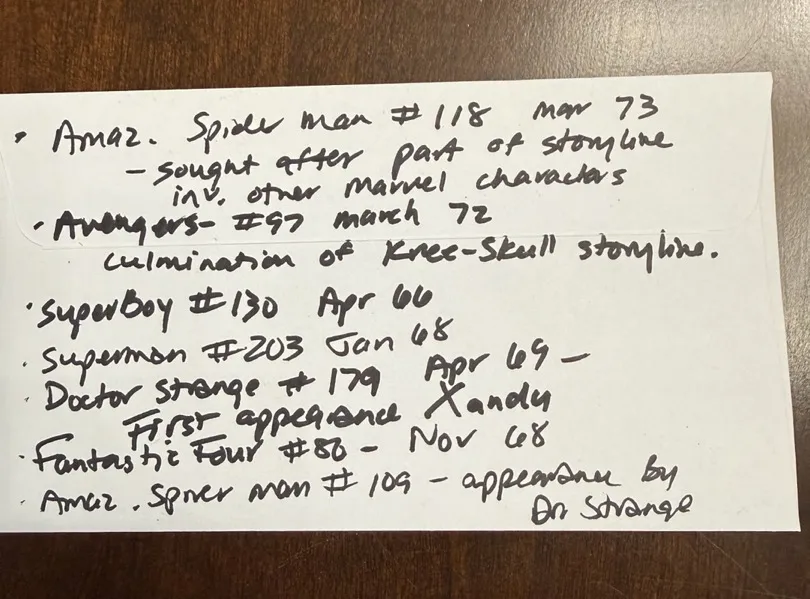 • Amaz. Spider man # 118 mar 73
- sought after part of storyline
inv. other marvel characters
• Avengers - #97 march 72
culmination of Kree-Skull storyline.
• SuperBoy #130 Apr 66
• Superman #203 Jan 68
• Doctor Strange # 179 Apr 69 -
First appearance Xandu
• Fantastic Four #80 - Nov 68
• Amaz. Spider man # 109 - appearance by
Dr Strange